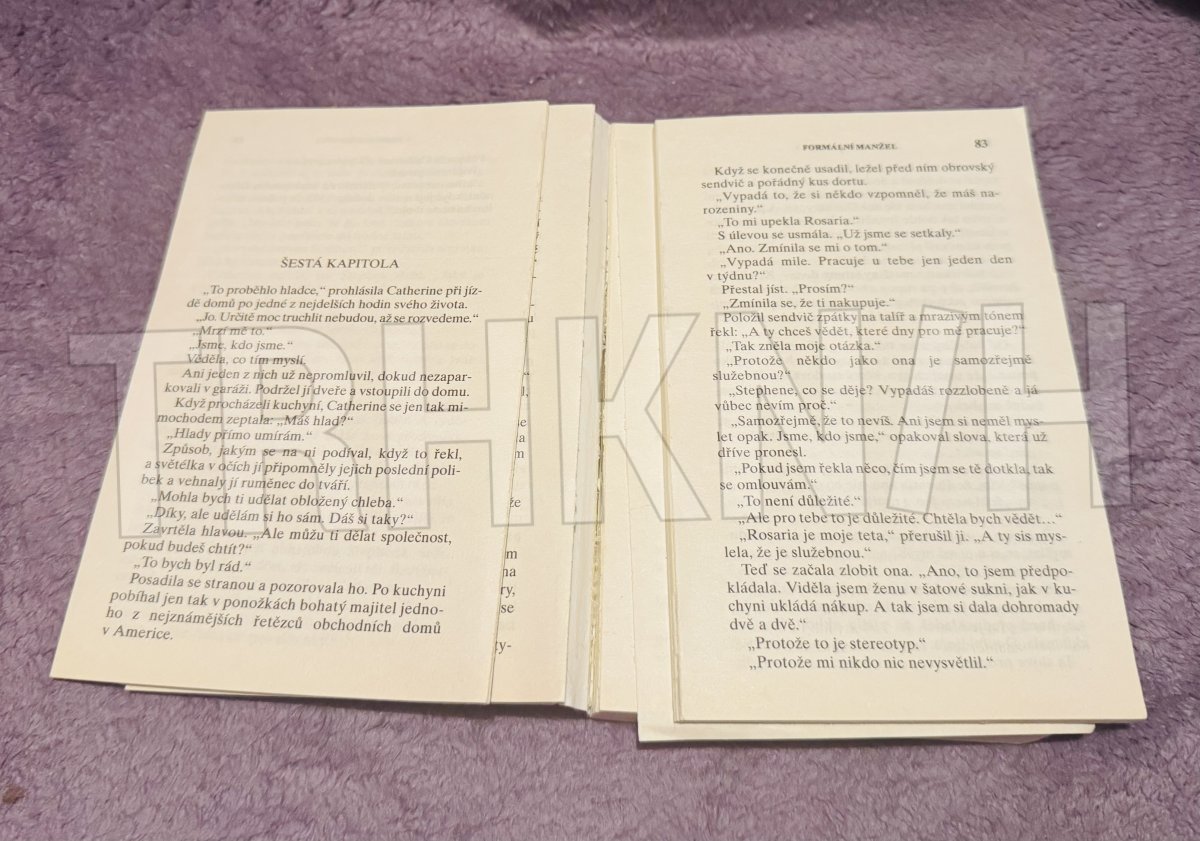 ŠESTÁ KAPITOLA
„To proběhlo hladce,“ prohlásila Catherine při jíz-
dě domů po jedné z nejdelších hodin svého života.
„Jo. Určitě moc truchlit nebudou, až se rozvedeme.“
„Mrzí mě to.“
„Jsme, kdo jsme.“
Věděla, co tím myslí.
Ani jeden z nich už nepromluvil, dokud nezapar-
kovali v garáži. Podržel jí dveře a vstoupili do domu.
Když procházeli kuchyní, Catherine se jen tak mi-
mochodem zeptala: „Máš hlad?“
„Hlady přímo umírám.“
Způsob, jakým se na ni podíval, když to řekl,
a světélka v očích jí připomněly jejich poslední poli-
bek a vehnaly jí ruměnec do tváří.
„Mohla bych ti udělat obložený chleba.“
„Díky, ale udělám si ho sám. Dáš si taky?“
Zavrtěla hlavou. „Ale můžu ti dělat společnost,
pokud budeš chtít?“
„To bych byl rád.“
Posadila se stranou a pozorovala ho. Po kuchyni
pobíhal jen tak v ponožkách bohatý majitel jedno-
ho z nejznámějších řetězců obchodních domů
v Americe.
FORMÁLNÍ MANŽEL 83
Když se konečně usadil, ležel před ním obrovský
sendvič a pořádný kus dortu.
„Vypadá to, že si někdo vzpomněl, že máš na-
rozeniny.“
„To mi upekla Rosaria.“
S úlevou se usmála. „Už jsme se setkaly.“
„Ano. Zmínila se mi o tom.“
„Vypadá mile. Pracuje u tebe jen jeden den
v týdnu?“
Přestal jíst. „Prosím?“
„Zmínila se, že ti nakupuje.“
Položil sendvič zpátky na talíř a mrazivým tónem
řekl: „A ty chceš vědět, které dny pro mě pracuje?“
„Tak zněla moje otázka.“
„Protože někdo jako ona je samozřejmě
služebnou?“
„Stephene, co se děje? Vypadáš rozzlobeně a já
vůbec nevím proč.“
„Samozřejmě, že to nevíš. Ani jsem si neměl mys-
let opak. Jsme, kdo jsme,“ opakoval slova, která už
dříve pronesl.
„Pokud jsem řekla něco, čím jsem se tě dotkla, tak
se omlouvám.“
„To není důležité.“
„Ale pro tebe to je důležité. Chtěla bych vědět…“
„Rosaria je moje teta,“ přerušil ji. „A ty sis mys-
lela, že je služebnou.“
Teď se začala zlobit ona. „Ano, to jsem předpo-
kládala. Viděla jsem ženu v šatové sukni, jak v ku-
chyni ukládá nákup. A tak jsem si dala dohromady
dvě a dvě.“
„Protože to je stereotyp.“
„Protože mi nikdo nic nevysvětlil.“
TRHKNIH